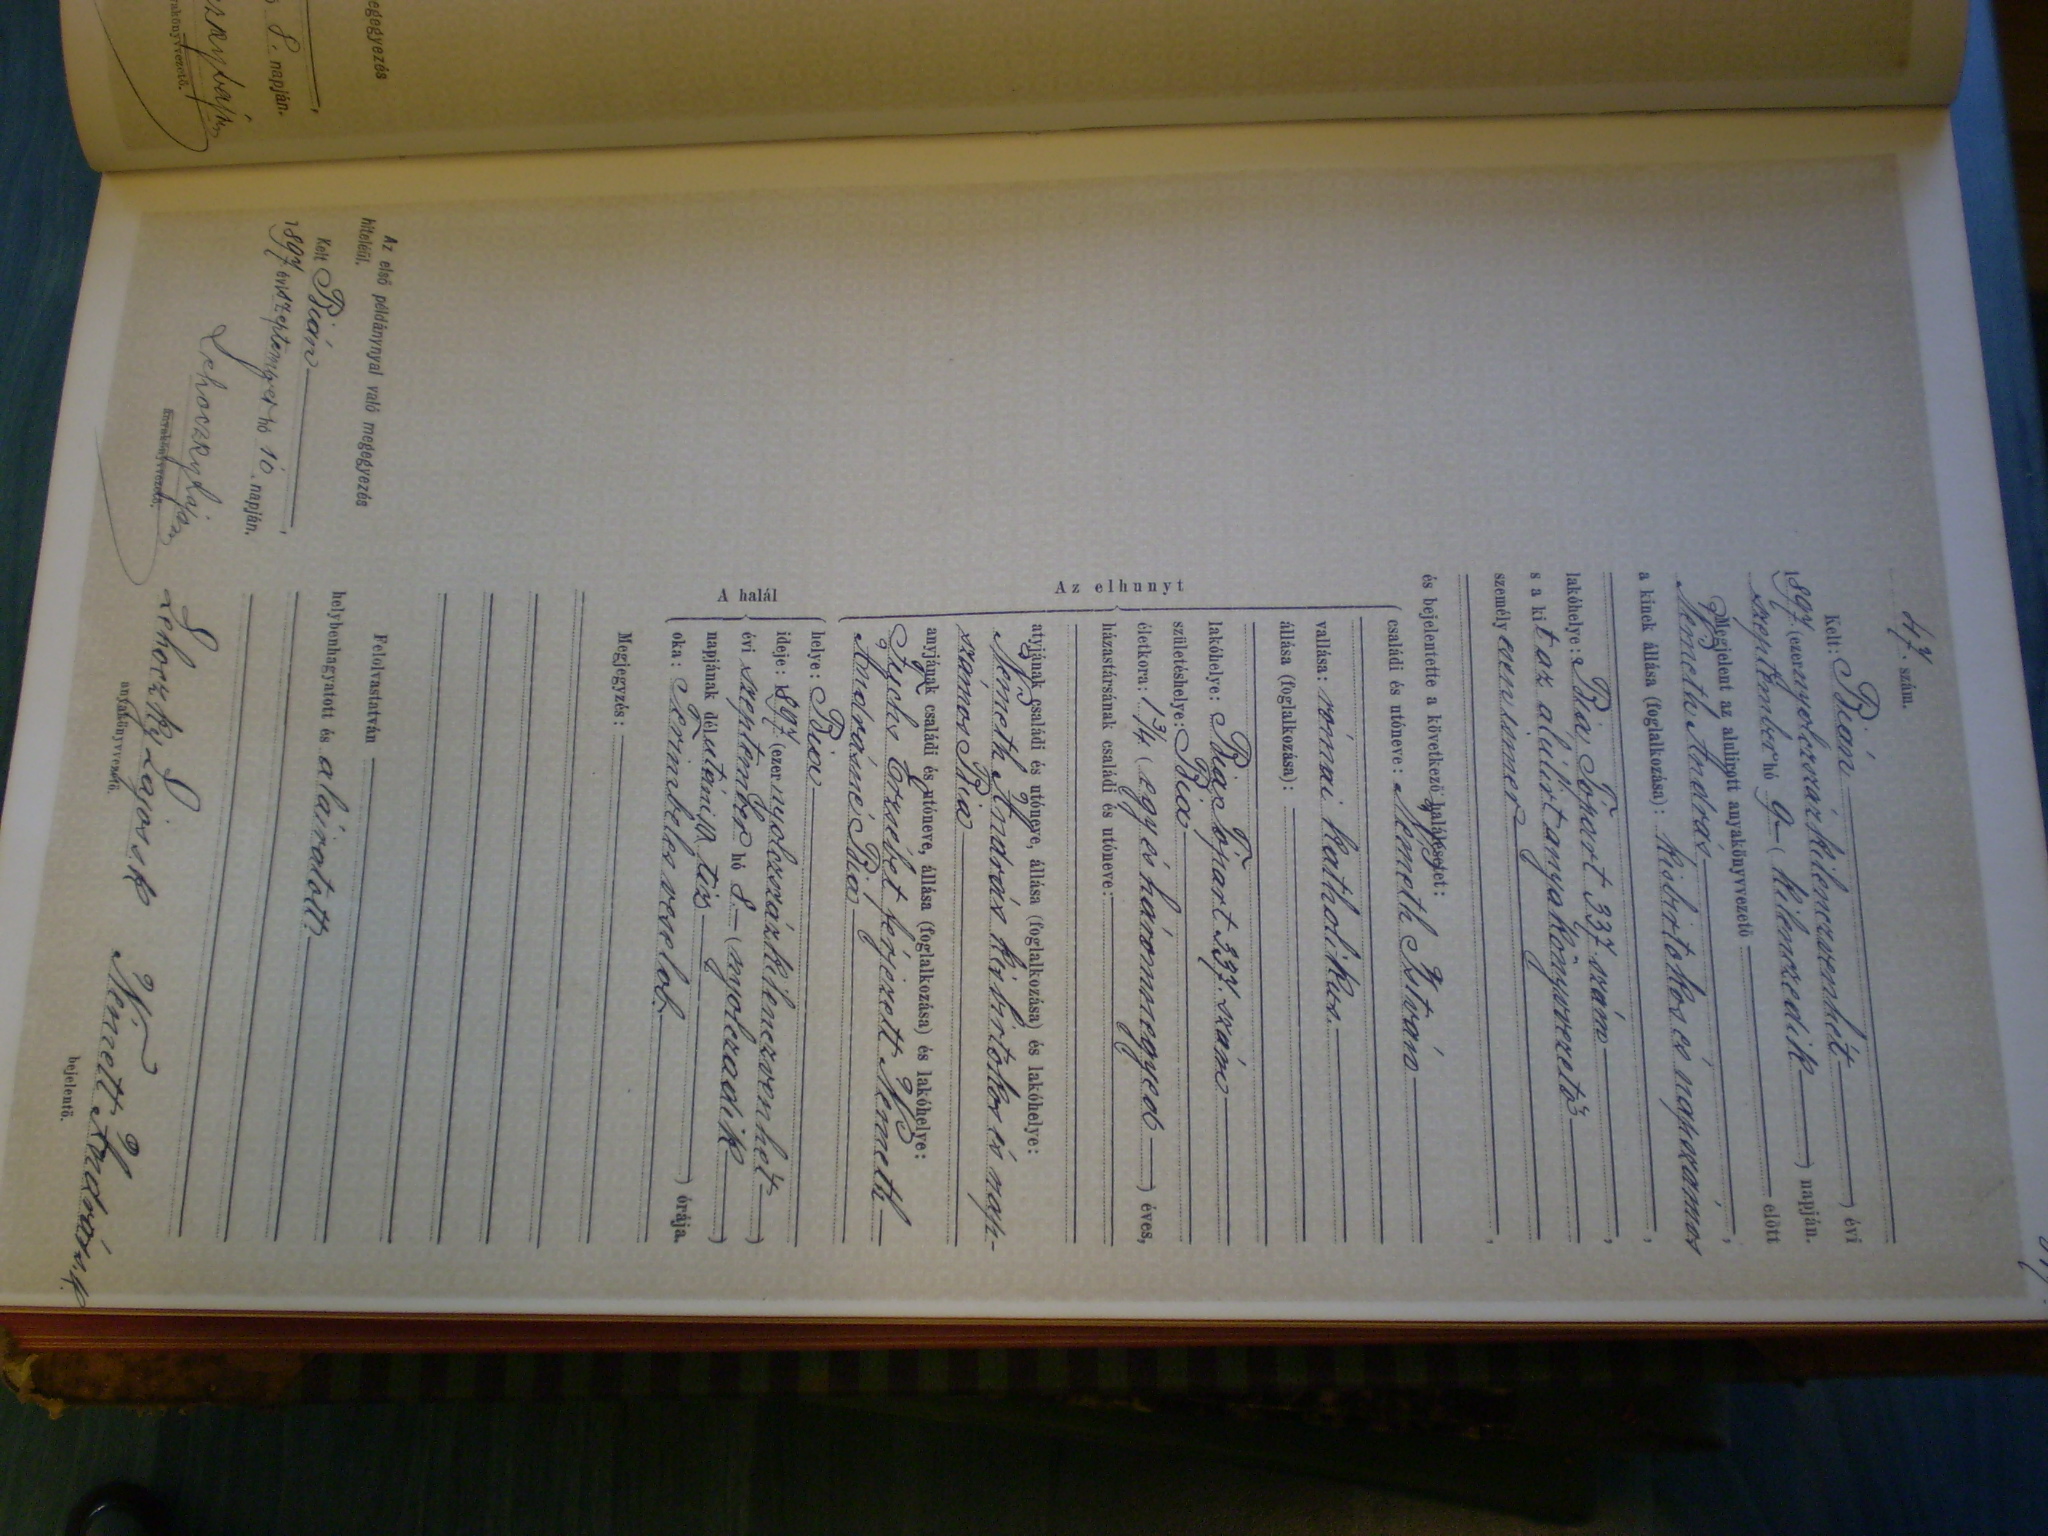 47. szám.
Kelt: Bián 1897. (ezernyolczszázkilenczvenhét) évi
szeptember hó 9-(kilenczedik) napján.
Megjelent az alulirott anyakönyvvezető előtt
Németh András,
a kinek állása (foglalkozása): kisbirtokos és napszámos,
lakóhelye: Bia, Főpart 337 szám,
s a kit az alulirt anyakönyvvezető
személyesen ismer,
és bejelentette a következő halálesetet:
Az elhunyt
családi és utóneve: Németh István
vallása: római katholikus.
állása (foglalkozása):
lakóhelye: Bia, Főpart 337. szám
születéshelye: Bia
életkora: 1 3/4 (egy és háromnegyed) éves,
házastársának családi és utóneve:
atyjának családi és utóneve, állása (foglalkozása) és lakóhelye:
Németh András kisbirtokos és nap-
számos Bia
anyjának családi és utóneve, állása (foglalkozása) és lakóhelye:
Fuchs Erzsébet férjezett Németh
Andrásné Bia
A halál
helye: Bia
ideje: 1897. (ezernyolczszázkilenczvenhét)
évi szeptember hó 8.-(nyolczadik)
napjának délutáni tíz órája.
oka: veselob.
Megjegyzés:
Felolvastatván
helybenhagyatott és aláiratott.
Lehoczky Lajos sk
anyakönyvvezető.
Németh András sk
bejelentő.
Az első példánynyal való megegyezés
hiteléül.
Kelt Bián,
1897 évi szeptember hó 10. napján.
Lehoczky Lajos
anyakönyvvezető.
egegyezés
8. napján.
rakönyvvezető.